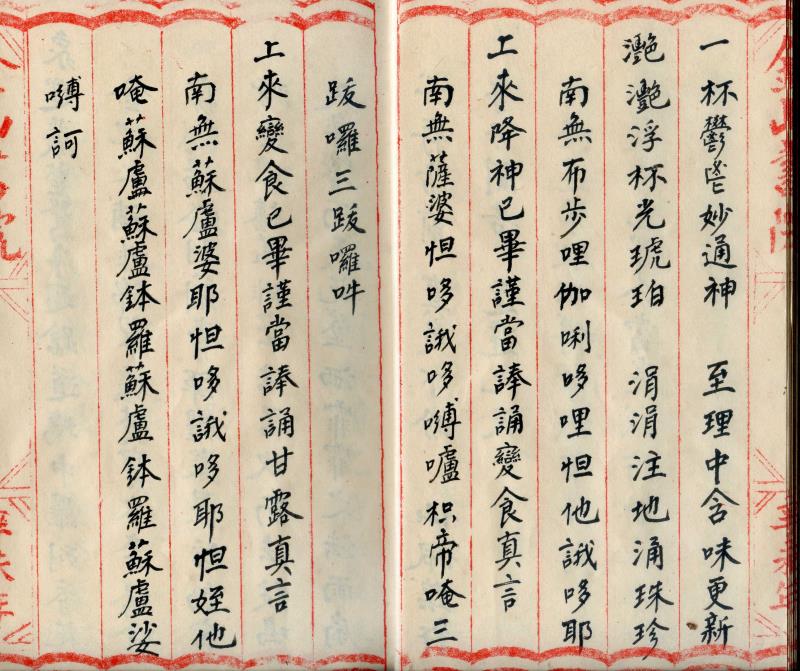 一杯鬱鬯妙通神 至理中含味更新
灔灔浮杯光琥珀 涓涓注地涌珠珍
南無布步哩伽唎哆哩怛他誐哆耶
上來降神已畢謹當諱誦變食真言
南無薩婆怛哆誐哆嚩嚧枳帝唵三
跋囉三跋囉吽
上來變食已畢謹當諱誦甘露真言
南無蘇盧婆耶怛哆誐哆耶怛姪他
唵蘇盧蘇盧鉢羅蘇盧鉢羅蘇盧娑
嚩訶
辛未年